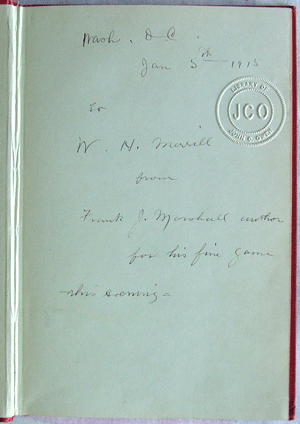 Wash. D C.
Jan 5th 1915
LIBRARY OF
JCO
JOHN C. OWEN
to
W. H. Merrill
from
Frank J. Marshall author
for his fine game
this evening